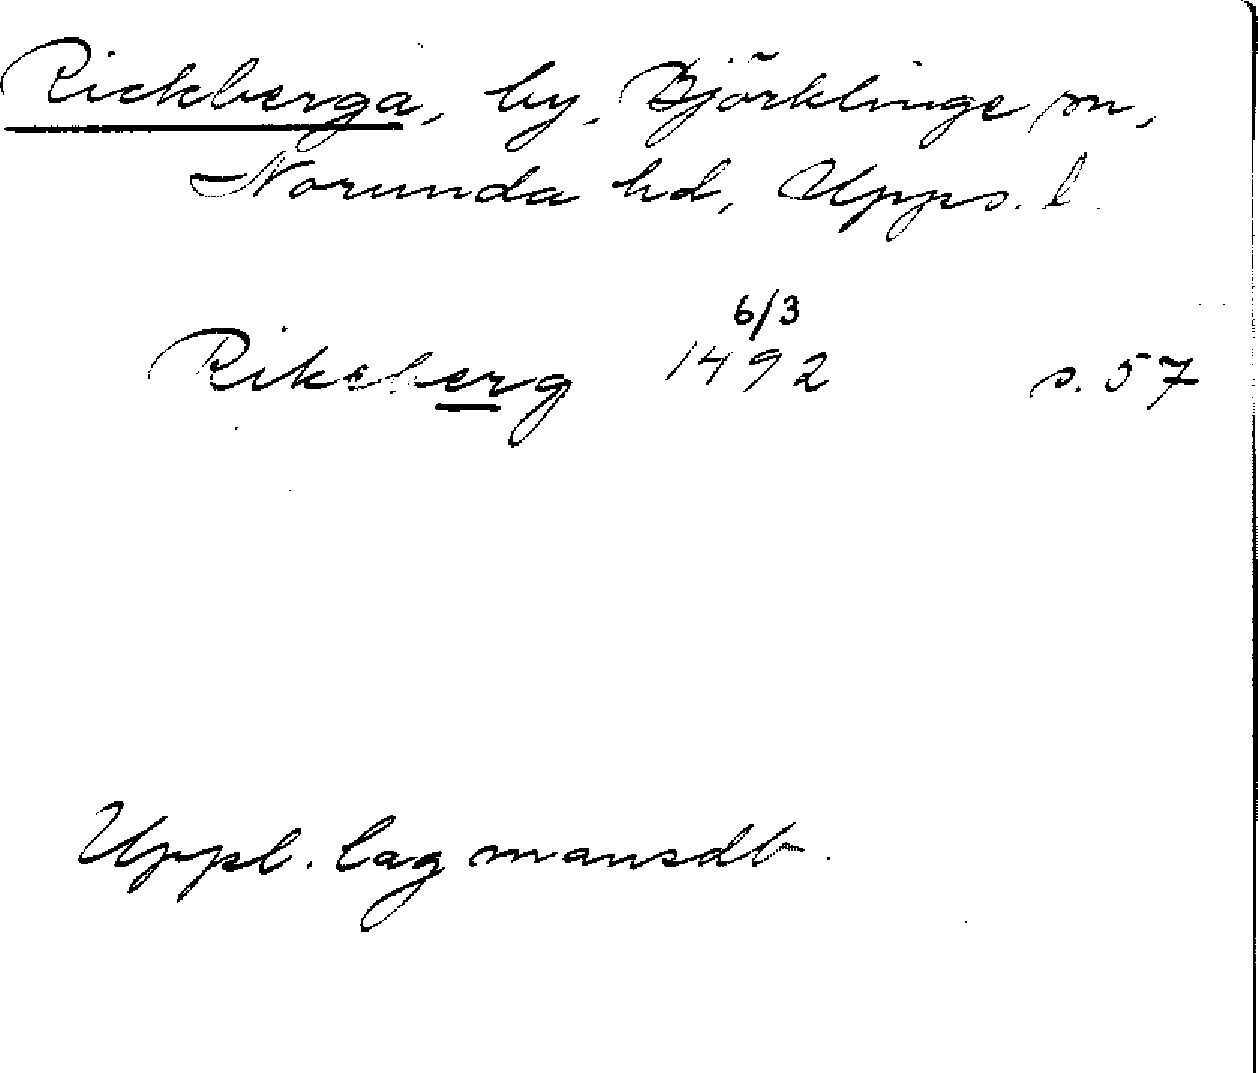 Rickberga, by, Björklinge sn,
Norunda hd, Upps. l.
6/3
Rikeberg 1492 s. 57
Uppl. lagmansdb.